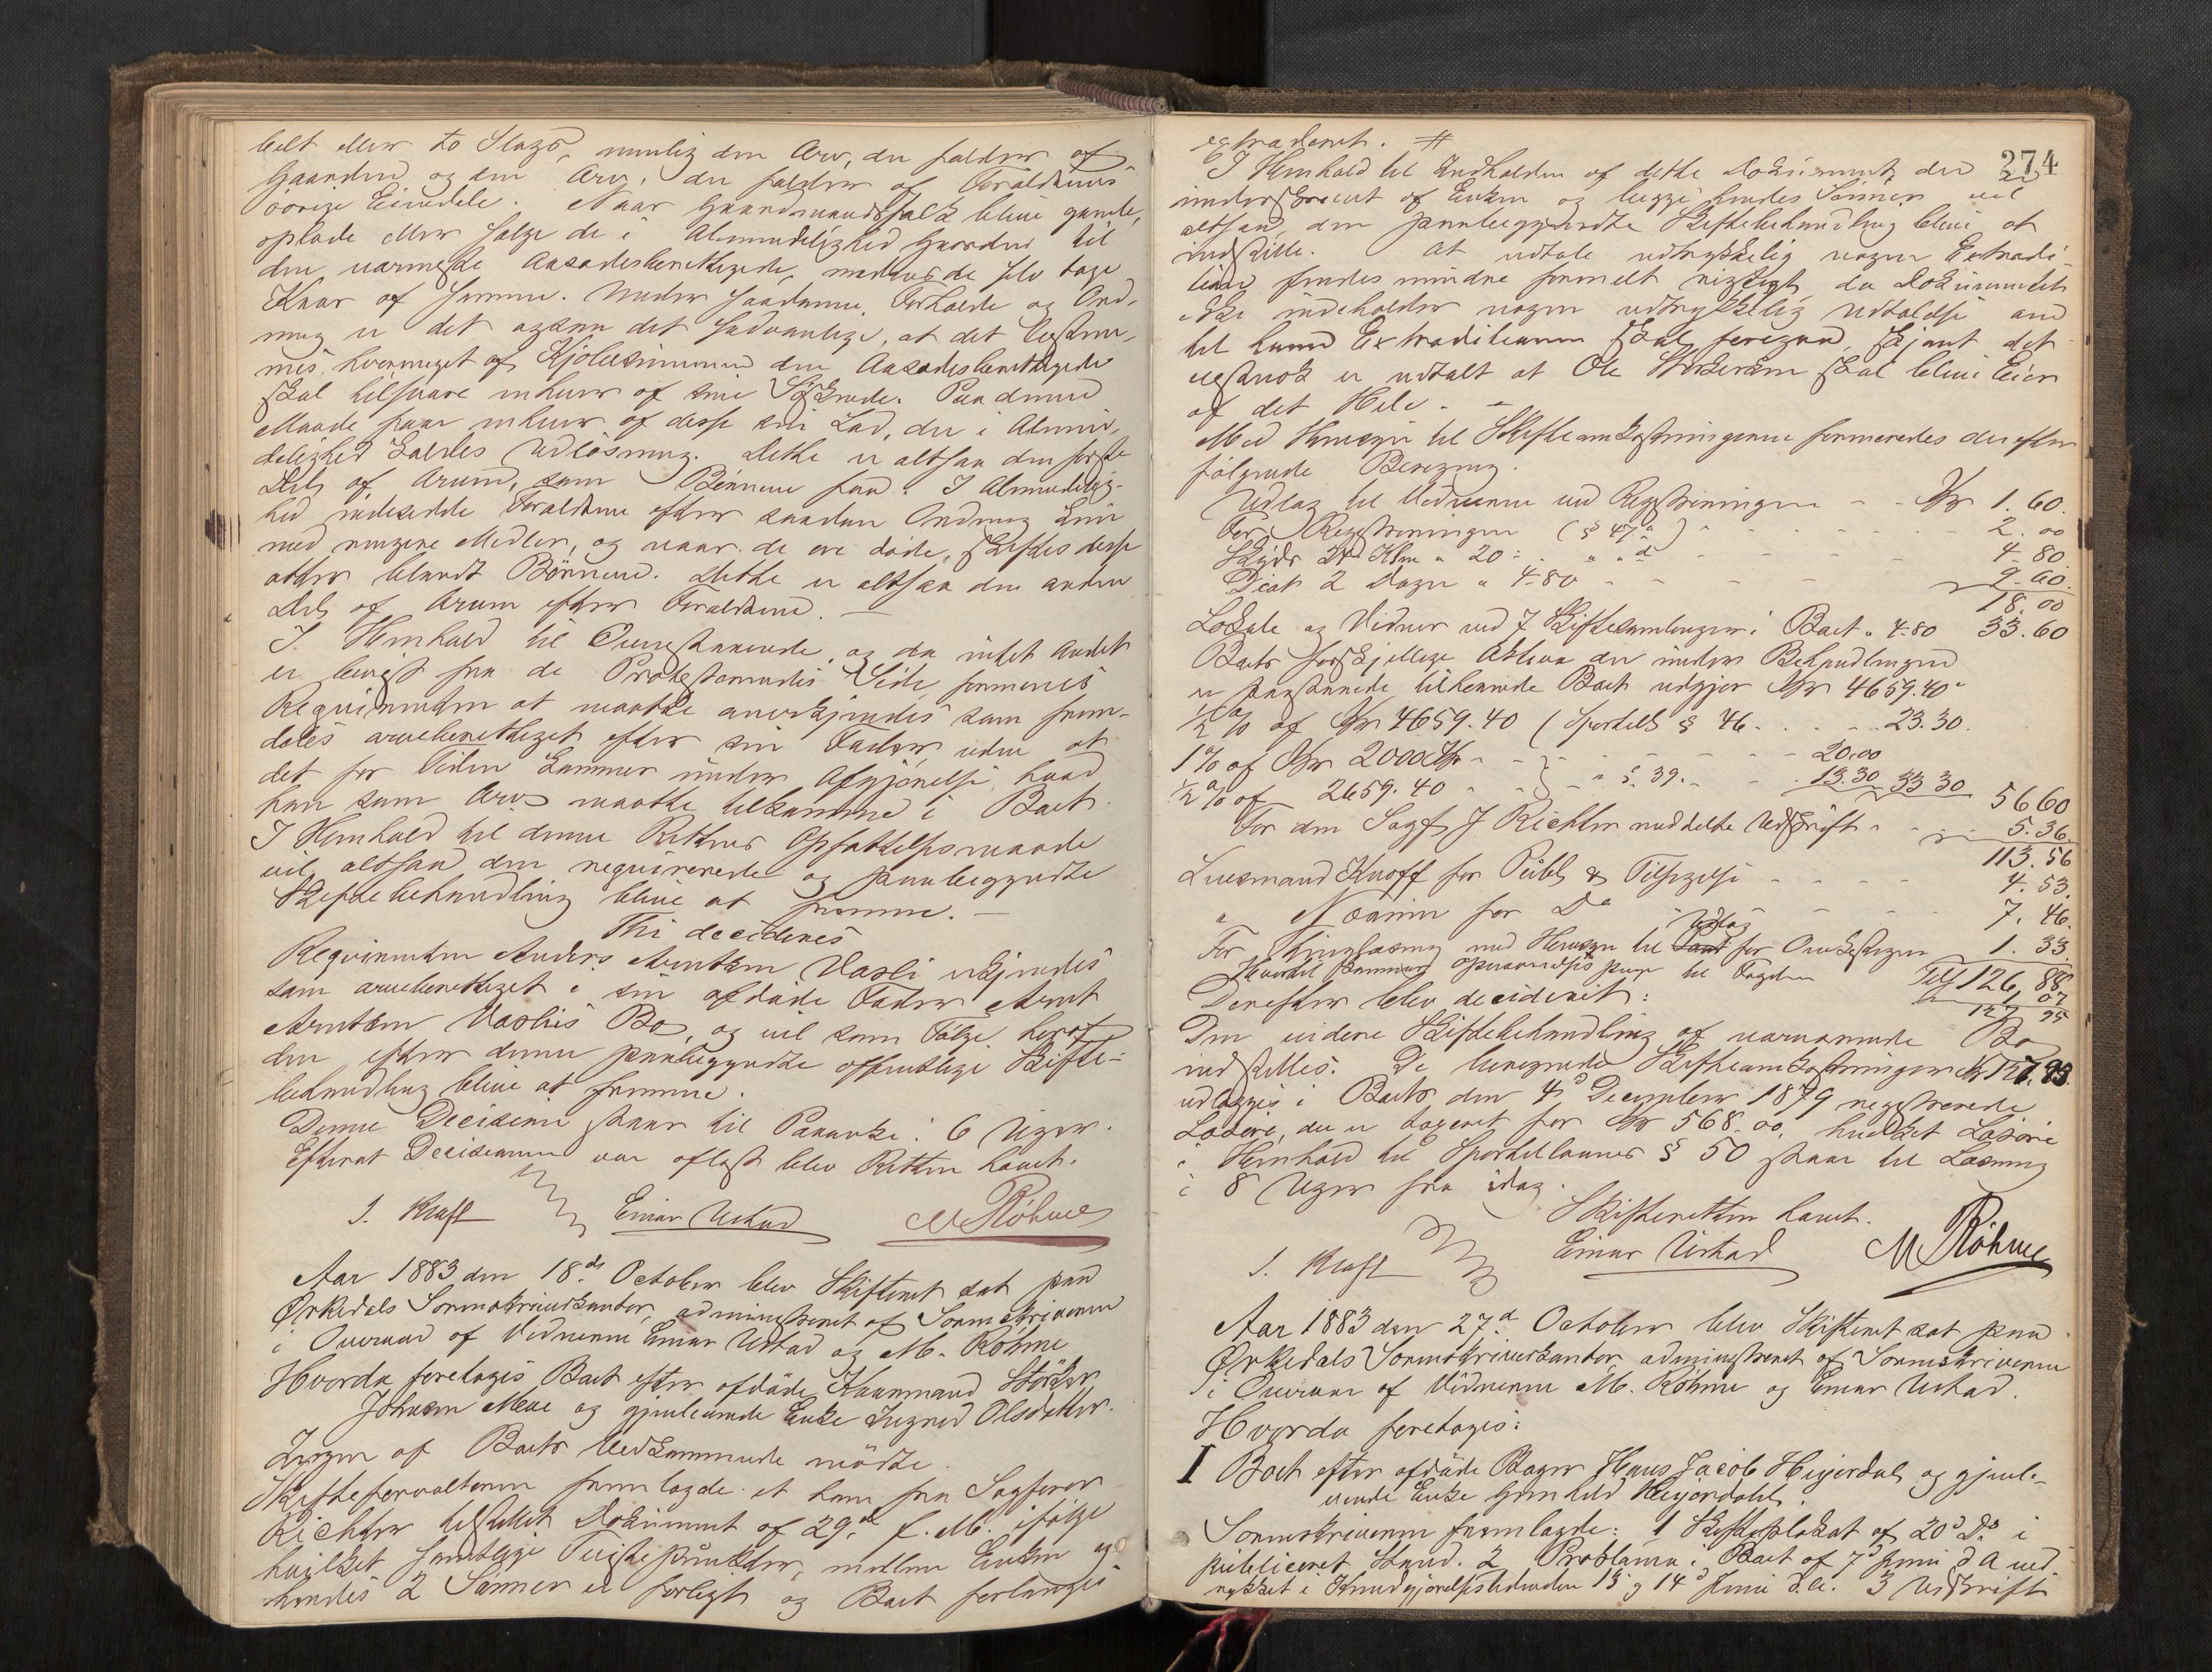 belt eller to Slags, nemlig den Arv, der falder af
Gaarden og den Arv, der falder af Forældrenes
øvrige Eiendele. Naar Gaardmandsfolk blive gamle,
oplade eller sælge de i Almindelighed Gaarden til
den nærmeste Aasædesberettigede, medens de selv tage
Kaar af samme. Under saadanne Forholde og Ord-
ning er det ogsaa det sædvanlige, at det bestem-
mes, hvormeget af Kjøbesummen den Aasædesberettigede
skal tilsvare enhver af sine Søskende. Paa denne
Maade faar enhver af disse sin Lod, der i Almin-
delighed kaldes Udløsning. Dette er altsaa den første
Del af Arven, som Børnene faa. I Almindelig-
hed indesidde Forældrene efter saadan Ordning kun
med ringere Midler, og naar de ere døde, skiftes disse
atter blandt Børnene. Dette er altsaa den anden
Del af Arven efter Forældrene. —
I Henhold til Ovenstaaende, og da intet Andet
er bevist fra de Protesterendes Side, formenes
Requirenten at maatte anerkjendes som frem-
deles arveberettiget efter sin Fader, uden at
det for Tiden kommer under Afgjørelse hvad
han som Arv maatte tilkomme i Boet.
I Henhold til denne Rettens Opfattelsesmaade
vil altsaa den requirerede og paabegyndte
Skiftebehandling blive at fremme. —
Thi decideres
Requirenten Anders Arntsen Vasli kjendes
som arveberettiget i sin afdøde Fader Arnt
Arntsen Vaslis Bo, og vil som Følge heraf
den efter denne paabegyndte offentlige Skifte-
behandling blive at fremme.
Denne Decision staar til Paaanke i 6 Uger.
Efterat Decisionen var oplæst blev Retten hævet.
I. Kraft Einar Ustad M Røhme
Aar 1883 den 18de October blev Skifteret sat paa
Ørkedals Sorenskriverkontor, administreret af Sorenskriveren
i Overvær af Vidnerne Einar Ustad og M. Røhme
Hvorda foretoges Boet efter afdøde Kaarmand Størker
Johnsen Moe og gjenlevende Enke Ingrid Olsdatter.
Ingen af Boets Vedkommende mødte.
Skifteforvalteren fremlagde et ham fra Sagfører
Richter tilstillet Dokument af 29de f. M. ifølge
hvilket samtlige Tvistepunkter mellem Enken og
hendes 2 Sønner er forligt og Boet forlanges
274
extraderet. #
I Henhold til Indholdet af dette Dokument der er
underskrevet af Enken og begge hendes Sønner vil
altsaa den paabegyndte Skiftebehandling blive at
indstille. At udtale udtrykkelig nogen Extradi-
tion findes mindre formelt rigtigt, da Dokumentet
ikke indeholder nogen udtrykkelig Udtalelse om
til hvem Extraditionen skal foregaa, skjønt det
vistnok er udtalt at Ole Størkersen skal blive Eier
af det Hele. —
Med Hensyn til Skifteomkostningerne formeredes der efter
følgende Beregning.
Udlæg til Vidnerne ved Registreringen - - Kr 1.60.
For Registreringen (§ 47a) - - - 2.00
Skyds 24 Klm a 20 - - - 4.80
Diæt 2 Dage a 4.80 - - - 9.60.
18.00
Lokale og Vidner ved 7 Skiftesamlinger i Boet a 4.80 33.60
Boets forskjellige Aktiva der under Behandlingen
er paastaaede tilhørende Boet udgjør Kr 4659.40
1/2 % af Kr 4659.40 (Sportell § 46. - - 23.30.
1 % af Kr 2000 Kr - - - 20.00
1/2 % af 2659.40 - - " § 39. - - 13.30 33 30 56 60
For den Sagf. J Richter meddelte Udskrift - - 5.36.
113.56
Lensmand Knoff for Publ & Tilsigelse - - - 4.53.
" Noanin for Do - - 7.46.
For Thinglæsning med Hensyn til Pant Udlæg for Omkostninger 1.33.
Hvortil kommer Opvartelses penge til Fogden Tils 126,88
1 07
127 95
Derefter blev decideret:
Den videre Skiftebehandling af nærværende Bo
indstilles. De beregnede Skifteomkostninger Kr 127.95
udlægges i Boets den 4de December 1879 registrerede
Løsøre, der er taxeret for Kr 568.00, hvilket Løsøre
i Henhold til Sportellovens § 50 staar til Løsning
i 8 Uger fra idag.
Skifteretten hævet.
I. Kraft Einar Ustad M Røhme
Aar 1883 den 27de October blev Skifteret sat paa
Ørkedals Sorenskriverkontor, administreret af Sorenskriveren
i Overvær af Vidnerne M. Røhme og Einar Ustad.
Hvorda foretoges:
I Boet efter afdøde Bager Hans Jacob Heijerdal og gjenle-
vende Enke Gunhild Heijerdahl.
Sorenskriveren fremlagde: 1 Skifteplakat af 20de Ds i
publiceret Stand. 2 Proklama i Boet af 7de Juni d A ind
rykket i Kundgjørelsestidenden 13 og 14de Juni d. A. 3 Udskrift